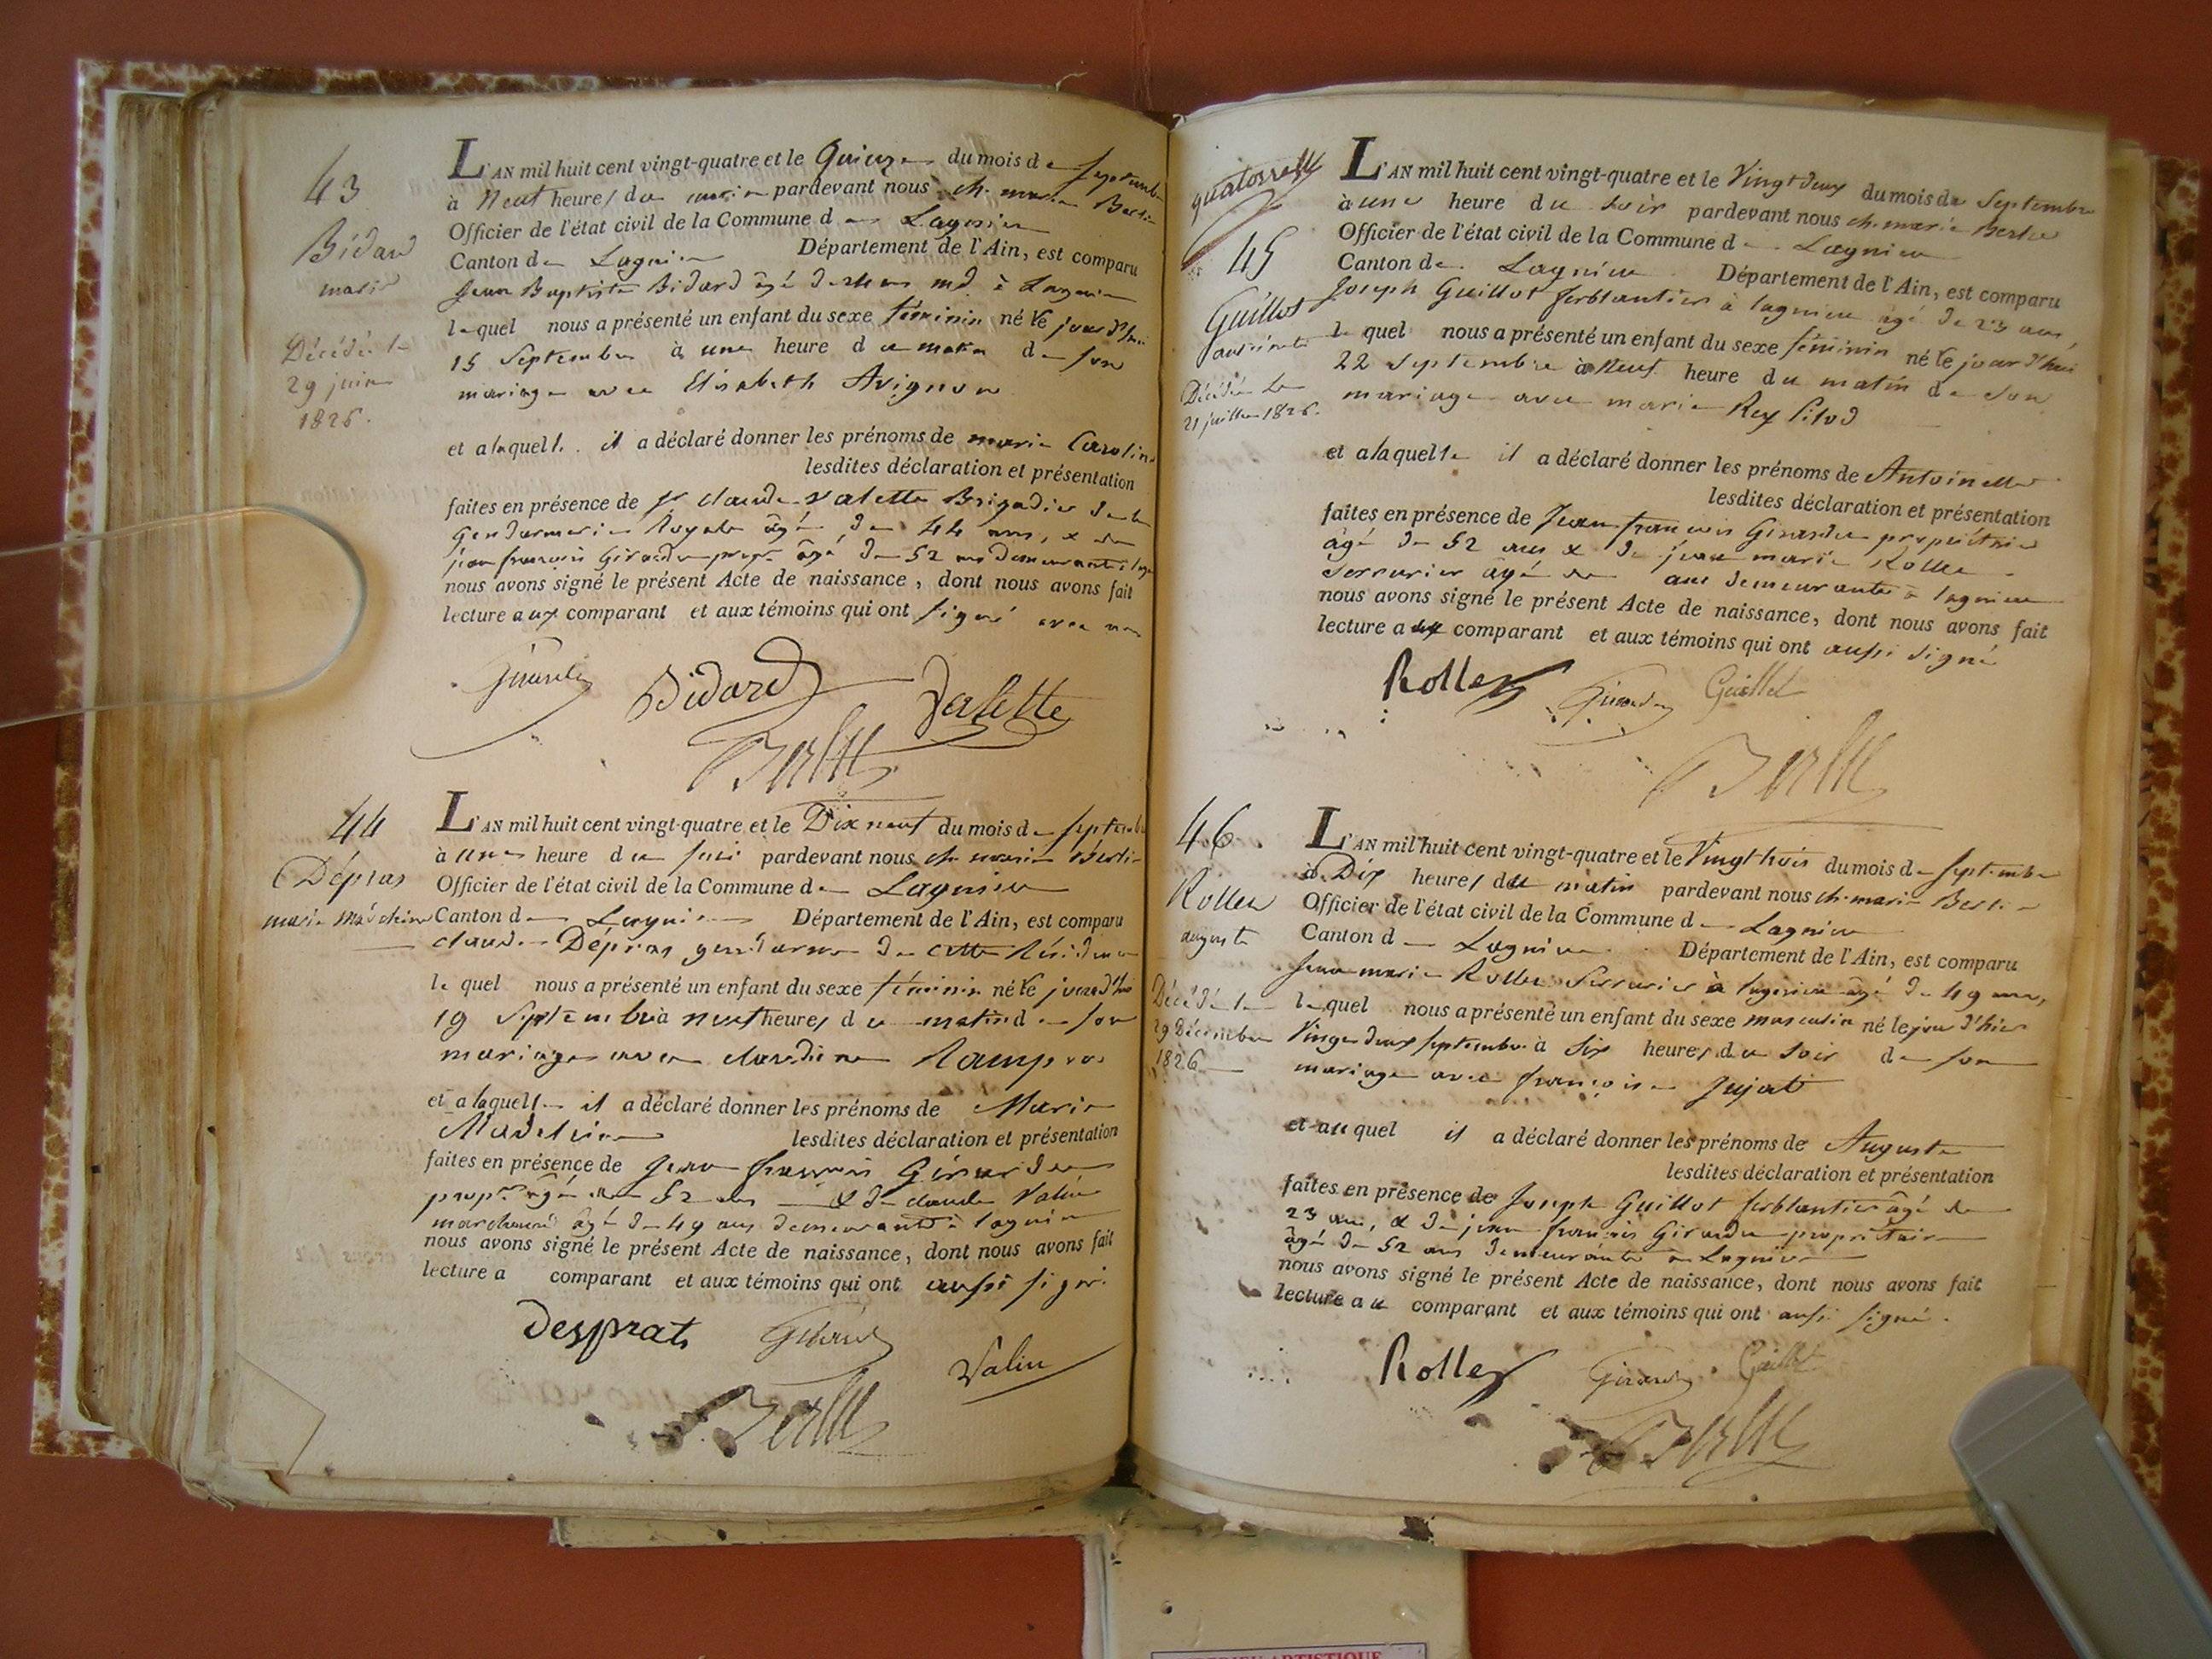 43
Bidard
marie
Décédée le
29 juin
1825.
L'AN mil huit cent vingt-quatre et le Quinze du mois de septembre
à Neuf heures du matin pardevant nous ch. marie
Officier de l'état civil de la Commune de Lagnieu
Canton de Lagnieu Département de l'Ain, est comparu
Jean Baptiste Bidard âgé de ans md à Lagnieu
lequel nous a présenté un enfant du sexe féminin né le jourd'hui
15 Septembre à une heure du matin de son
mariage avec Elisabeth Avignon
et a laquelle il a déclaré donner les prénoms de marie Caroline
lesdites déclaration et présentation
faites en présence de Sr claude Valette Brigadier de la
Gendarmerie Royale âgé de 44 ans, & de
jean françois Girardu propre âgé de 52 ans demeurants à
nous avons signé le présent Acte de naissance, dont nous avons fait
lecture aux comparant et aux témoins qui ont signé avec nous
Bidard Valette
44
Dépras
marie Madeleine
L'AN mil huit cent vingt-quatre et le Dix neuf du mois de septembre
à une heure du soir pardevant nous ch. marie
Officier de l'état civil de la Commune de Lagnieu
Canton de Lagnieu Département de l'Ain, est comparu
claude Dépras gendarme de cette Résidence
lequel nous a présenté un enfant du sexe féminin né le jourd'hui
19 Septembre à neuf heures du matin de son
mariage avec claudine
et a laquelle il a déclaré donner les prénoms de Marie
Madeleine lesdites déclaration et présentation
faites en présence de Jean françois Girardu
propre âgé de 52 ans & de claude Valin
marchand âgé de 49 ans demeurants à lagnieu
nous avons signé le présent Acte de naissance, dont nous avons fait
lecture a comparant et aux témoins qui ont aussi signé.
Desprats Valin
quatorze
45
Guillot
antoinette
Décédée le
21 juillet 1825.
L'AN mil huit cent vingt-quatre et le Vingt deux du mois de Septembre
à une heure du soir pardevant nous ch. marie
Officier de l'état civil de la Commune de Lagnieu
Canton de Lagnieu Département de l'Ain, est comparu
Joseph Guillot ferblantier à lagnieu âgé de 23 ans,
lequel nous a présenté un enfant du sexe féminin né le jourd'hui
22 Septembre à Neuf heure du matin de son
mariage avec marie Rey
et a laquelle il a déclaré donner les prénoms de Antoinette
lesdites déclaration et présentation
faites en présence de Jean françois Girardu propriétaire
âgé de 52 ans & de jean marie Rolle
serrurier âgé de ans demeurants à lagnieu
nous avons signé le présent Acte de naissance, dont nous avons fait
lecture a comparant et aux témoins qui ont aussi signé
Guillot
46
auguste
Décédé le
29 Décembre
1826
L'AN mil huit cent vingt-quatre et le Vingt trois du mois de septembre
à Dix heures du matin pardevant nous ch. marie
Officier de l'état civil de la Commune de Lagnieu
Canton de Lagnieu Département de l'Ain, est comparu
Jean marie Serrurier à lagnieu âgé de 49 ans,
lequel nous a présenté un enfant du sexe masculin né le jour d'hier
Vingt deux septembre à six heures du soir de son
mariage avec françoise Jujat
et auquel il a déclaré donner les prénoms de Auguste
lesdites déclaration et présentation
faites en présence de Joseph Guillot ferblantier âgé de
23 ans, & de jean françois Girardu propriétaire
âgé de 52 ans demeurants à Lagnieu
nous avons signé le présent Acte de naissance, dont nous avons fait
lecture au comparant et aux témoins qui ont aussi signé.
Guillot
ARTISTIQUE